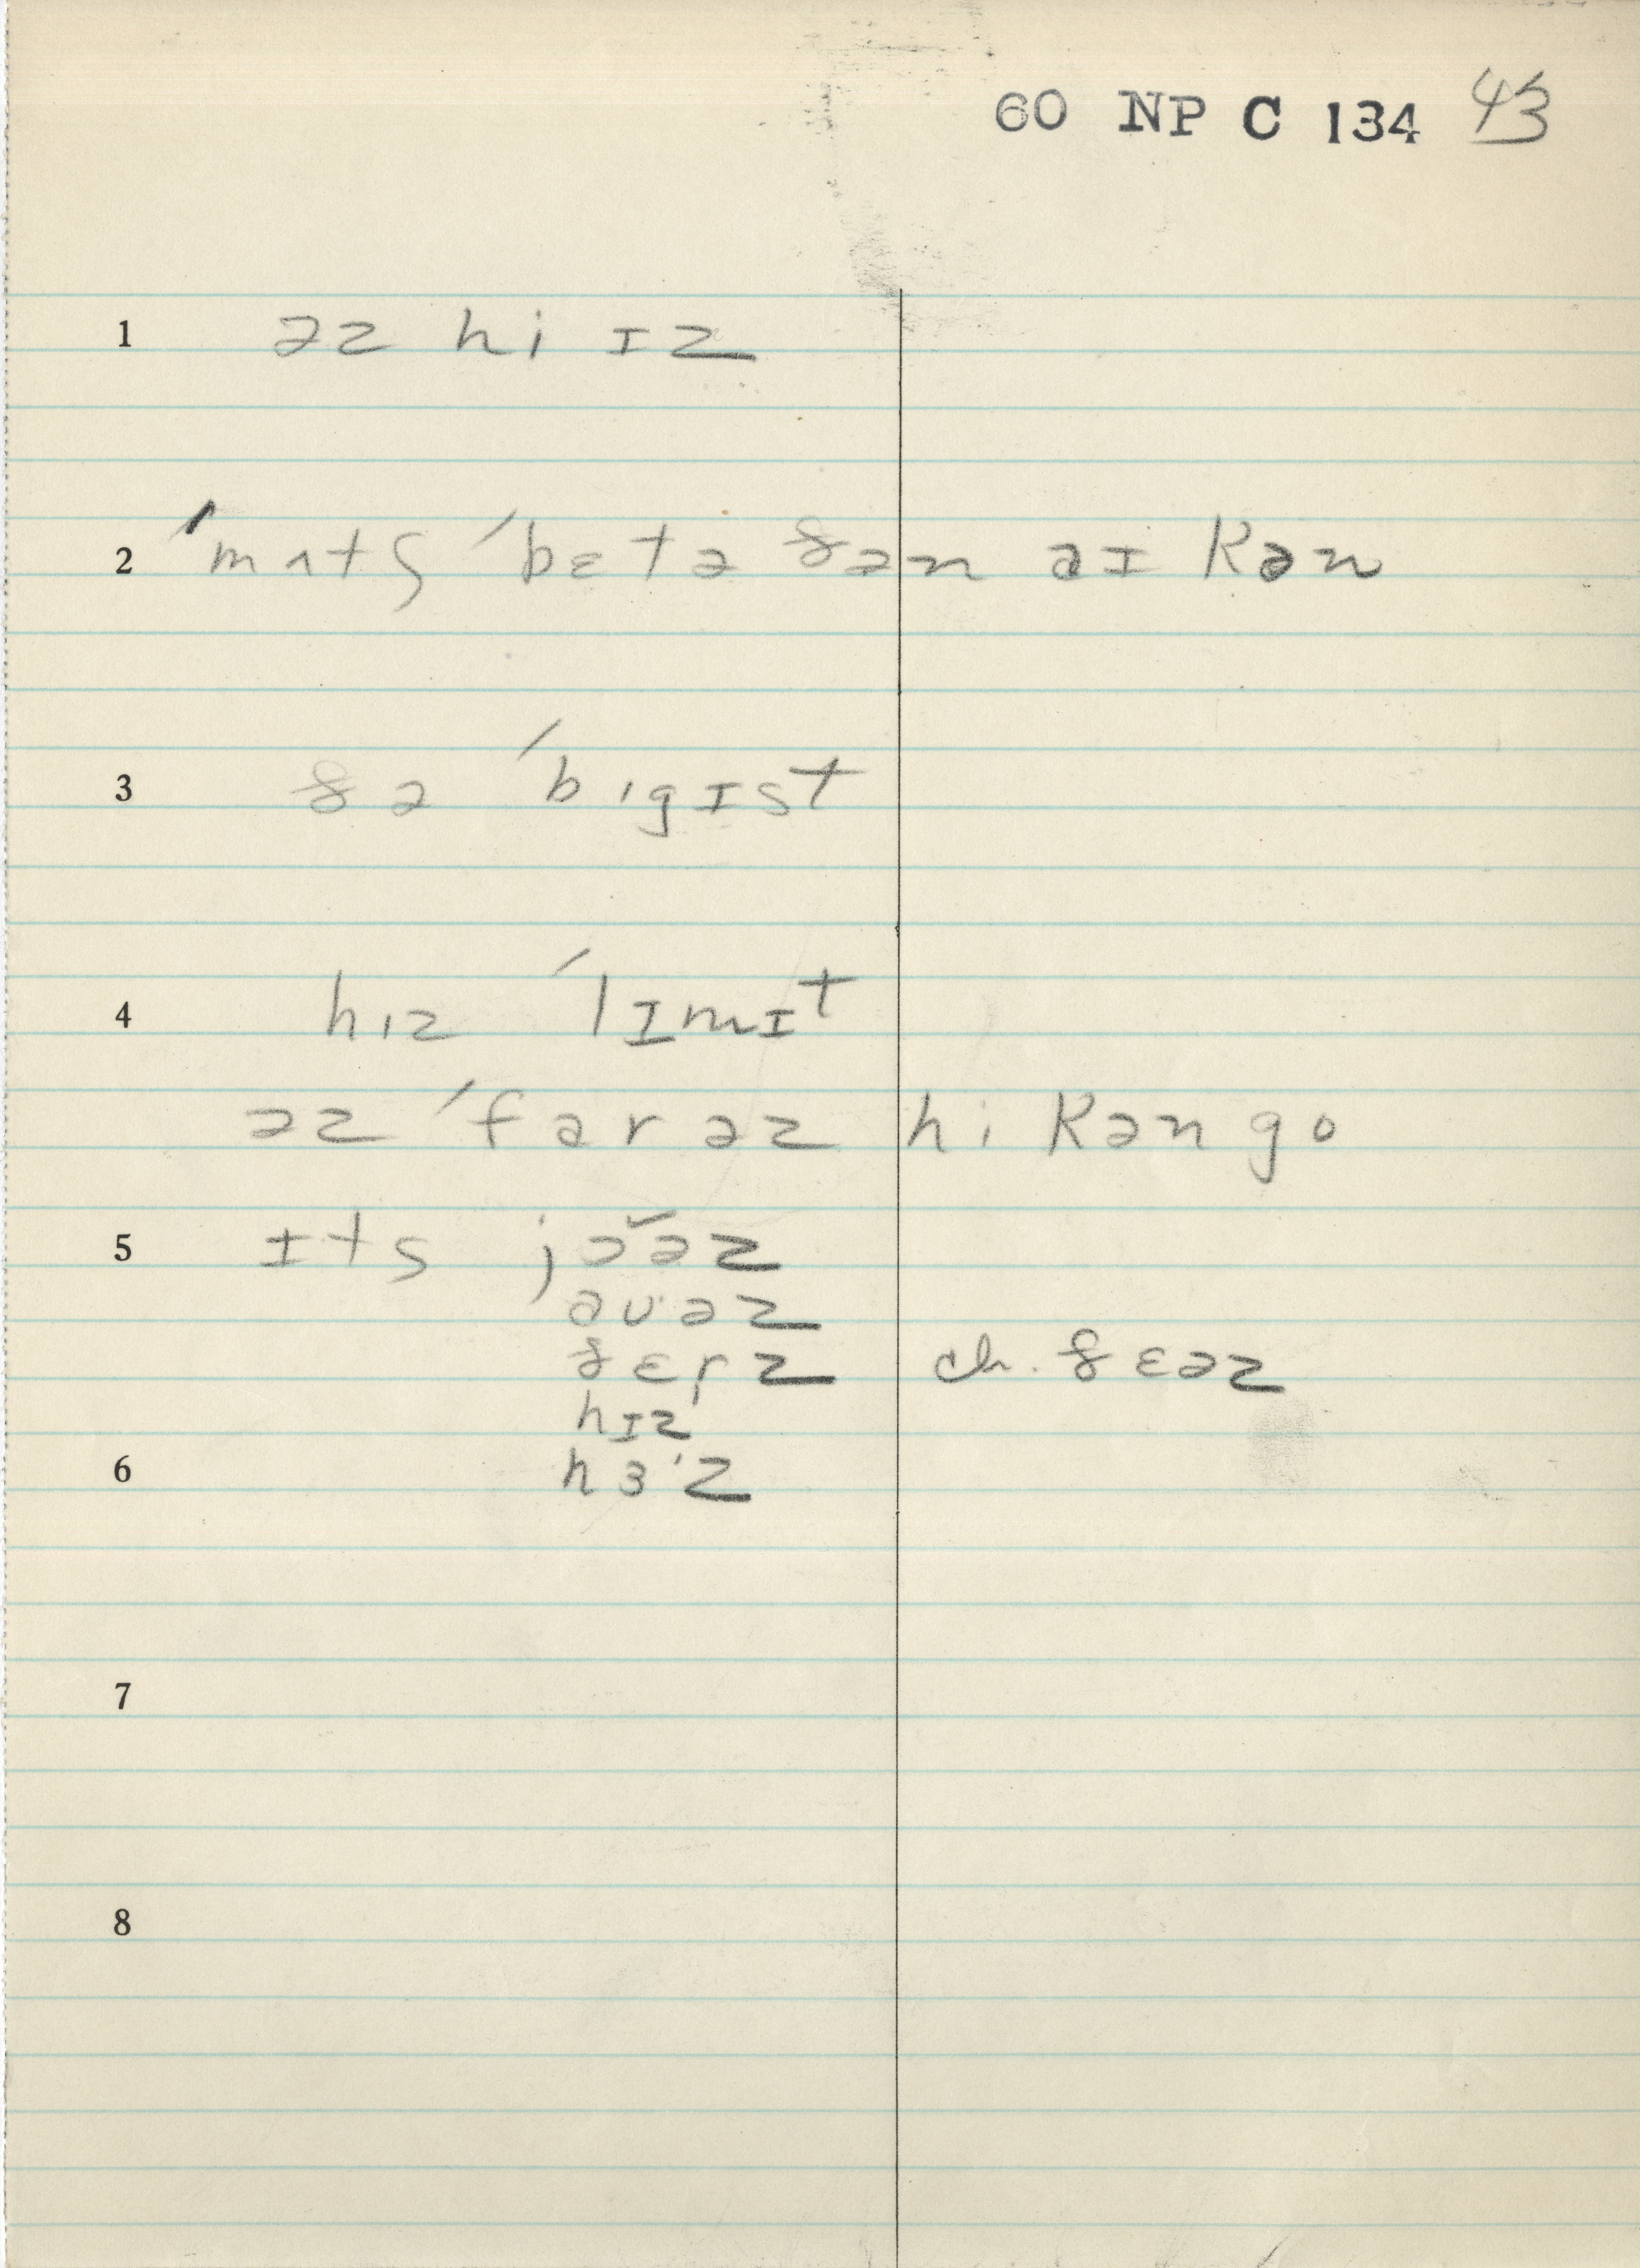 60 NP C 134 43
1 əz hi ɪz
2 ˈmʌtʃ ˈbɛtə ðən aɪ kən
3 ðə ˈbɪgɪst
4 hɪz ˈlɪmɪt
əz ˈfar əz hi kən go
5 ɪts jɔ̆əz
auəz
ðɛrz ch. ðɛəz
hɪz
6 hɜˑz
7
8